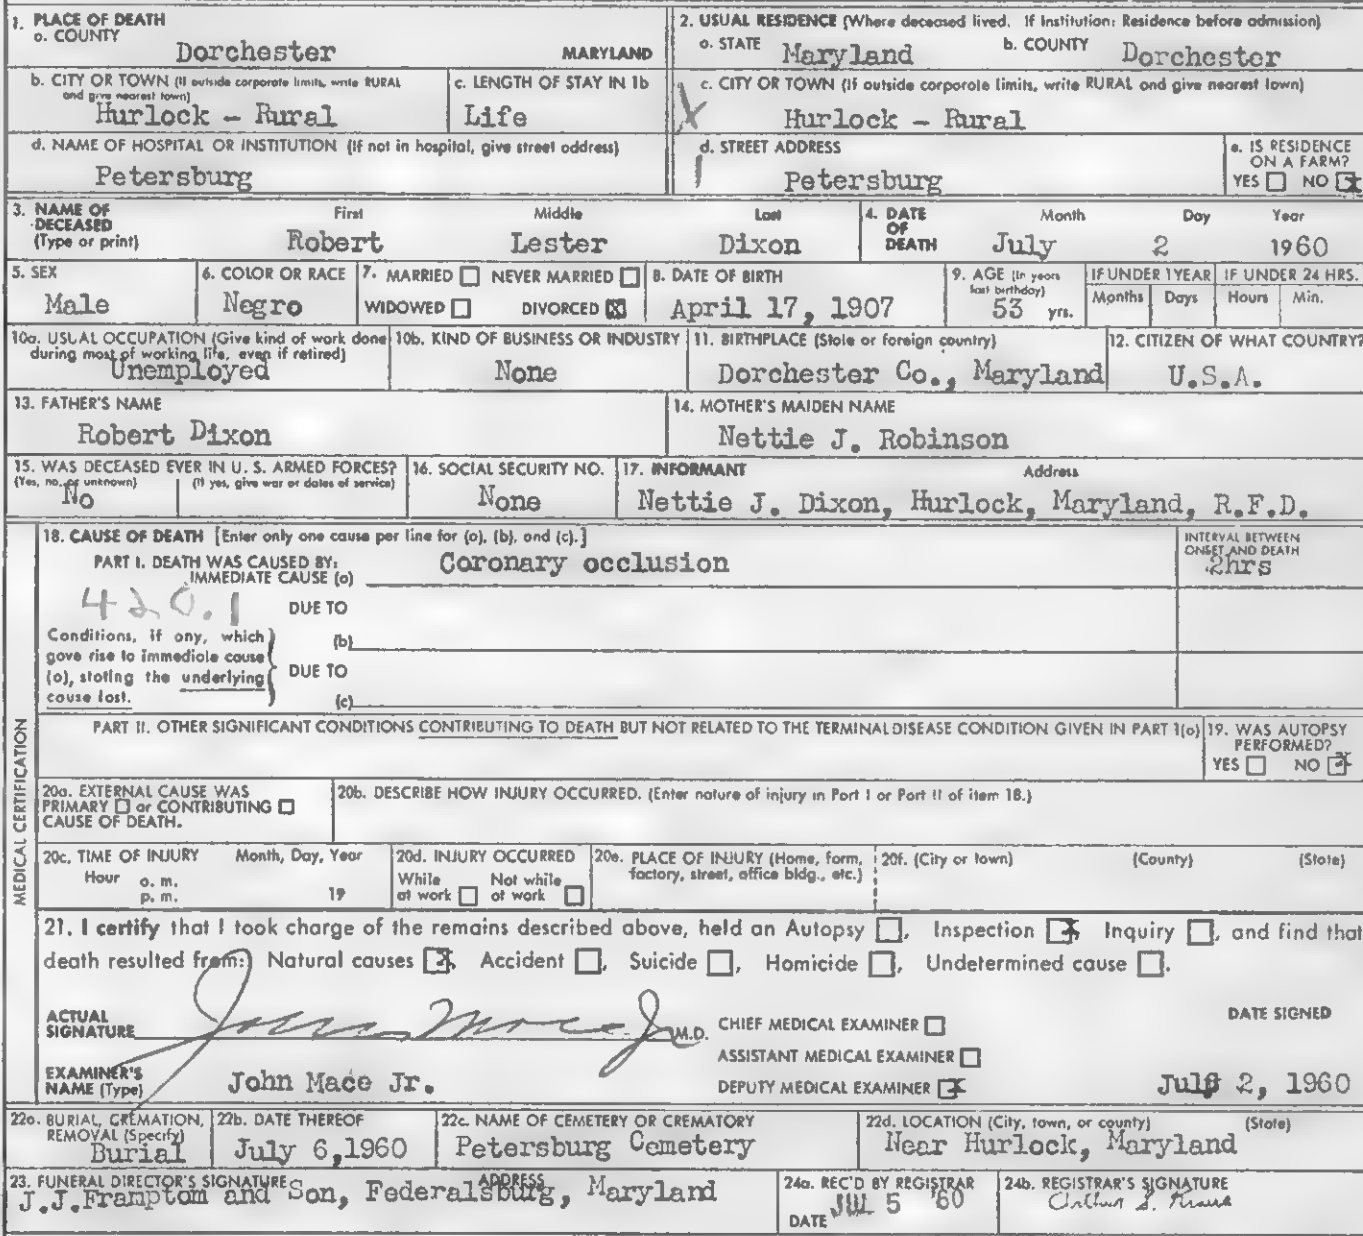 1. PLACE OF DEATH
a. COUNTY
Dorchester MARYLAND
2. USUAL RESIDENCE (Where deceased lived. If Institution: Residence before admission)
a. STATE Maryland b. COUNTY Dorchester
b. CITY OR TOWN (If outside corporate limits, write RURAL and give nearest town)
Hurlock - Rural
c. LENGTH OF STAY IN 1b
Life
c. CITY OR TOWN (If outside corporate limits, write RURAL and give nearest town)
Hurlock - Rural
d. NAME OF HOSPITAL OR INSTITUTION (If not in hospital, give street address)
Petersburg
d. STREET ADDRESS
Petersburg
e. IS RESIDENCE ON A FARM?
YES NO X
3. NAME OF DECEASED (Type or print)
First Middle Last
Robert Lester Dixon
4. DATE OF DEATH
Month Day Year
July 2 1960
5. SEX
Male
6. COLOR OR RACE
Negro
7. MARRIED NEVER MARRIED
WIDOWED DIVORCED X
8. DATE OF BIRTH
April 17, 1907
9. AGE (In years last birthday)
53 yrs.
IF UNDER 1 YEAR
Months Days
IF UNDER 24 HRS.
Hours Min.
10a. USUAL OCCUPATION (Give kind of work done during most of working life, even if retired)
Unemployed
10b. KIND OF BUSINESS OR INDUSTRY
None
11. BIRTHPLACE (State or foreign country)
Dorchester Co., Maryland
12. CITIZEN OF WHAT COUNTRY?
U.S.A.
13. FATHER'S NAME
Robert Dixon
14. MOTHER'S MAIDEN NAME
Nettie J. Robinson
15. WAS DECEASED EVER IN U. S. ARMED FORCES?
(Yes, no, or unknown) (If yes, give war or dates of service)
No
16. SOCIAL SECURITY NO.
None
17. INFORMANT Address
Nettie J. Dixon, Hurlock, Maryland, R.F.D.
MEDICAL CERTIFICATION
18. CAUSE OF DEATH [Enter only one cause per line for (a), (b), and (c).]
PART I. DEATH WAS CAUSED BY:
IMMEDIATE CAUSE (a) Coronary occlusion
INTERVAL BETWEEN ONSET AND DEATH
2hrs
420.1
DUE TO
(b)
Conditions, if any, which
gave rise to immediate cause
(a), stating the underlying
cause last.
DUE TO
(c)
PART II. OTHER SIGNIFICANT CONDITIONS CONTRIBUTING TO DEATH BUT NOT RELATED TO THE TERMINAL DISEASE CONDITION GIVEN IN PART I(a)
19. WAS AUTOPSY PERFORMED?
YES NO X
20a. EXTERNAL CAUSE WAS
PRIMARY or CONTRIBUTING
CAUSE OF DEATH.
20b. DESCRIBE HOW INJURY OCCURRED. (Enter nature of injury in Part I or Part II of item 18.)
20c. TIME OF INJURY Month, Day, Year
Hour a. m.
p. m. 19
20d. INJURY OCCURRED
While at work Not while at work
20e. PLACE OF INJURY (Home, farm, factory, street, office bldg., etc.)
20f. (City or town) (County) (State)
21. I certify that I took charge of the remains described above, held an Autopsy , Inspection X Inquiry , and find that
death resulted from: Natural causes X, Accident , Suicide , Homicide , Undetermined cause .
ACTUAL SIGNATURE John Mace Jr M.D.
CHIEF MEDICAL EXAMINER
DATE SIGNED
ASSISTANT MEDICAL EXAMINER
EXAMINER'S NAME (Type) John Mace Jr.
DEPUTY MEDICAL EXAMINER X
July 2, 1960
22a. BURIAL, CREMATION, REMOVAL (Specify)
Burial
22b. DATE THEREOF
July 6,1960
22c. NAME OF CEMETERY OR CREMATORY
Petersburg Cemetery
22d. LOCATION (City, town, or county) (State)
Near Hurlock, Maryland
23. FUNERAL DIRECTOR'S SIGNATURE ADDRESS
J.J.Framptom and Son, Federalsburg, Maryland
24a. REC'D BY REGISTRAR
DATE JUL 5 '60
24b. REGISTRAR'S SIGNATURE
Arthur S. Kraus